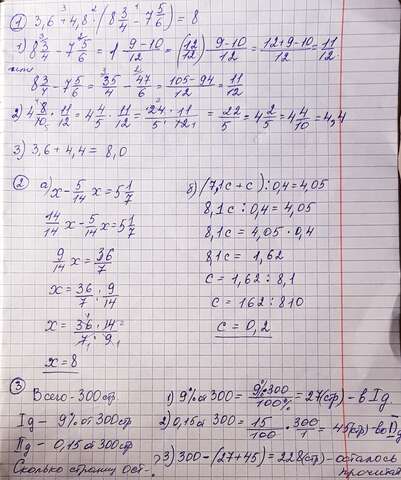 ① 3,6 + 4,8 · (8 3/4 − 7 5/6) = 8
1) 8 3/4 − 7 5/6 = 1 (9−10)/12 = (12/12) (9−10)/12 = (12+9−10)/12 = 11/12.
или
8 3/4 − 7 5/6 = 35/4 − 47/6 = (105−94)/12 = 11/12
2) 4 8/10 · 11/12 = 4 4/5 · 11/12 = (24 · 11)/(5 · 12) = 22/5 = 4 2/5 = 4 4/10 = 4,4
3) 3,6 + 4,4 = 8,0
② а) x − 5/14 x = 5 1/7
14/14 x − 5/14 x = 5 1/7
9/14 x = 36/7
x = 36/7 : 9/14
x = (36 · 14)/(7 · 9)
x = 8
б) (7,1с + с) : 0,4 = 4,05
8,1с : 0,4 = 4,05
8,1с = 4,05 · 0,4
8,1с = 1,62
с = 1,62 : 8,1
с = 16,2 : 81
с = 0,2
③ Всего - 300 стр
Iд - 9% от 300 стр
IIд - 0,15 от 300 стр
Сколько страниц ост-?
1) 9% от 300 = (9% · 300)/100% = 27 (стр) - в Iд
2) 0,15 от 300 = 15/100 · 300/1 = 45 (стр) - во IIд
3) 300 − (27 + 45) = 228 (стр) - осталось
прочитать